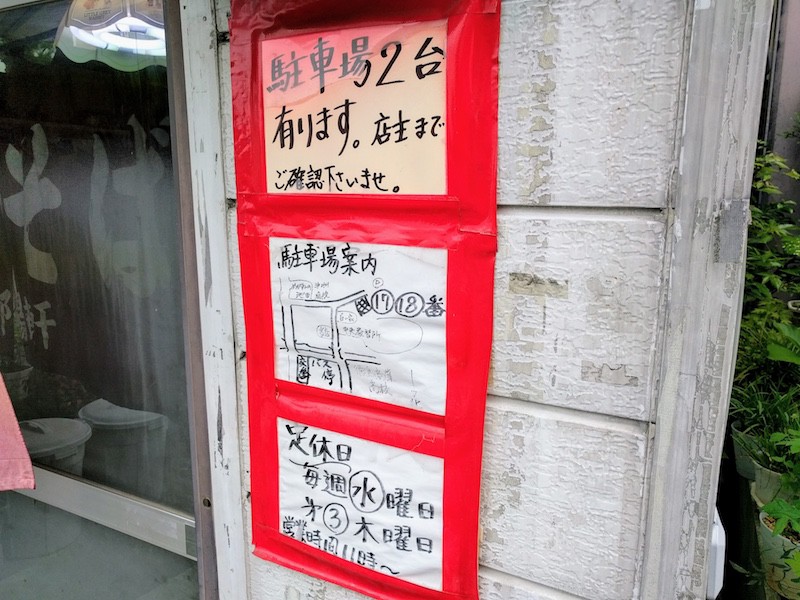 駐車場2台
有ります。店主まで
ご確認下さいませ。
駐車場案内
P
⑰⑱番
バス停
定休日
毎週㊌曜日
第③木曜日
営業時間11時〜
そば
軒